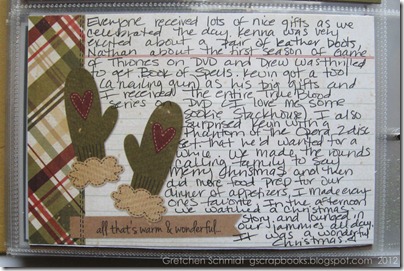 Everyone received lots of nice gifts as we
celebrated the day. Kenna was very
excited about a pair of leather boots,
Nathan about the first season of Game
of Thrones on DVD and Drew was thrilled
to get Book of Spells. Kevin got a tool
(a nailing gun) as his big gifts and
I received the entire True Blood
series on DVD (I love me some
Sookie Stackhouse). I also
surprised Kevin with a
Phantom of the Opera 2 disc
set that he'd wanted for a
while. We made the rounds
calling family to say
Merry Christmas and then
did more food prep for our
dinner of appetizers. I made every
one's favorite. In the afternoon
we watched a Christmas
Story and lounged in
our jammies all day.
It was a wonderful
Christmas.
all that's warm & wonderful...
Gretchen Schmidt gscrapbooks.blogspot.com 2012